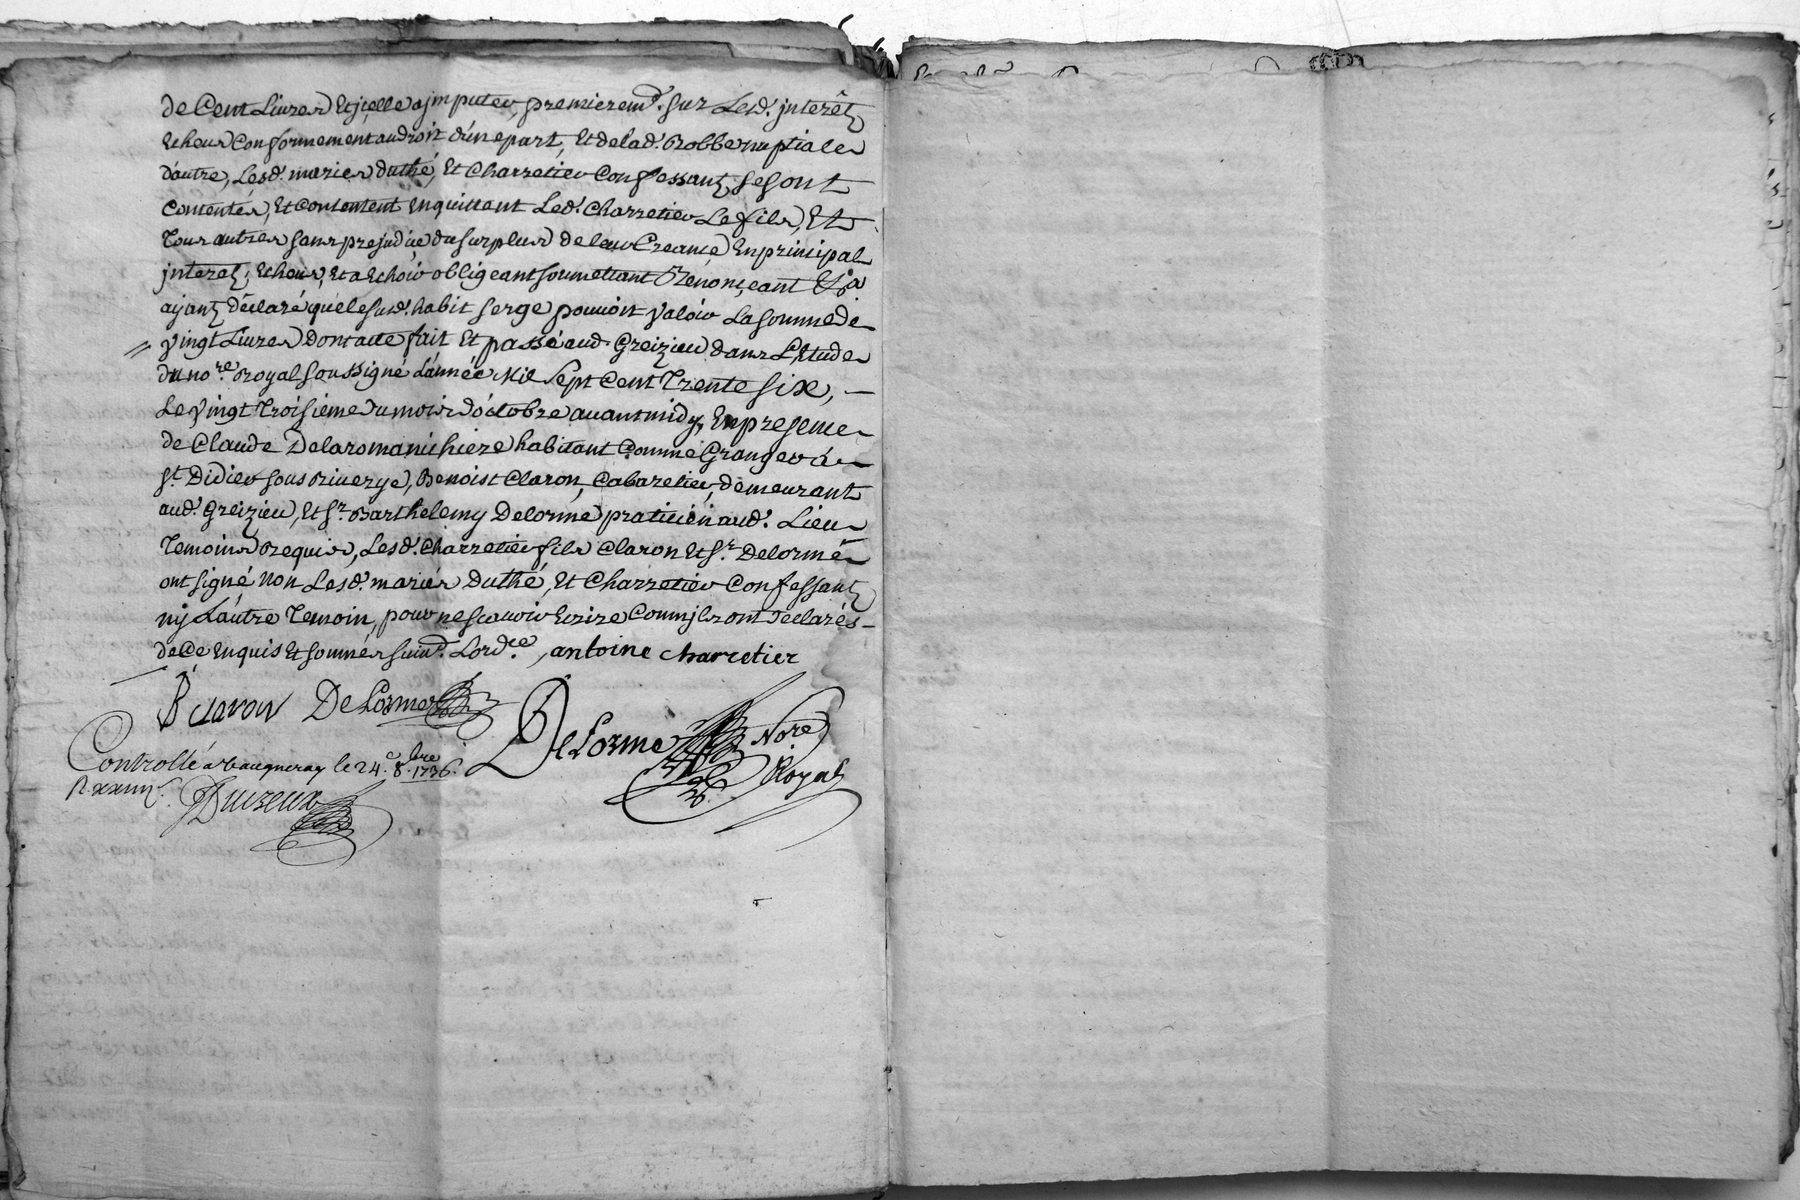 de Cent Livres Et jcelle ajmputer, premierem.t sur Lesd. jnterêts
Echeus Conformement au droit d'une part, Et de lad. Robbe nuptiale
d'autre, Lesd. mariés duthé, Et Charretier Confessants se sont
Contentés, Et Contentent Enquittant Led. Charretier Le fils, Et
Tous autres sans prejudice du surplus de leur Creance En principal
jnterets, Echeus, Et a Echoir obligeant soumettant Renonçeant &.a
ayants déclaré que le susd. habit serge pouvoit valoir La somme de
vingt Livres Dont acte fait Et passé aud. Greizieu dans L'Etude
du no.re Royal soussigné L'année Mil Sept Cent Trente six, —
Le vingt Troisieme du mois d'octobre avant midy, En presence
de Claude Delaromanichiere habitant Comme Granger à
S.t Didier sous Riverye, Benoist Claron, Cabaretier, demeurant
aud. Greizieu, Et S.r Barthelemy Delorme praticien aud. Lieu
Temoins Requis, Lesd. Charretier fils Claron Et S.r Delorme
ont signé, non Lesd. mariés duthé, Et Charretier Confessants
ny L'autre Temoin, pour ne scavoir Ecrire Comm'jls ont declarés
de Ce Enquis Et sommés suiv.t Lord.ce, antoine charretier
B claron DeLorme
DeLorme Nore
Royal
Controllé a vaugneray le 24.e 8.bre 1736.
R. xxiiii s.